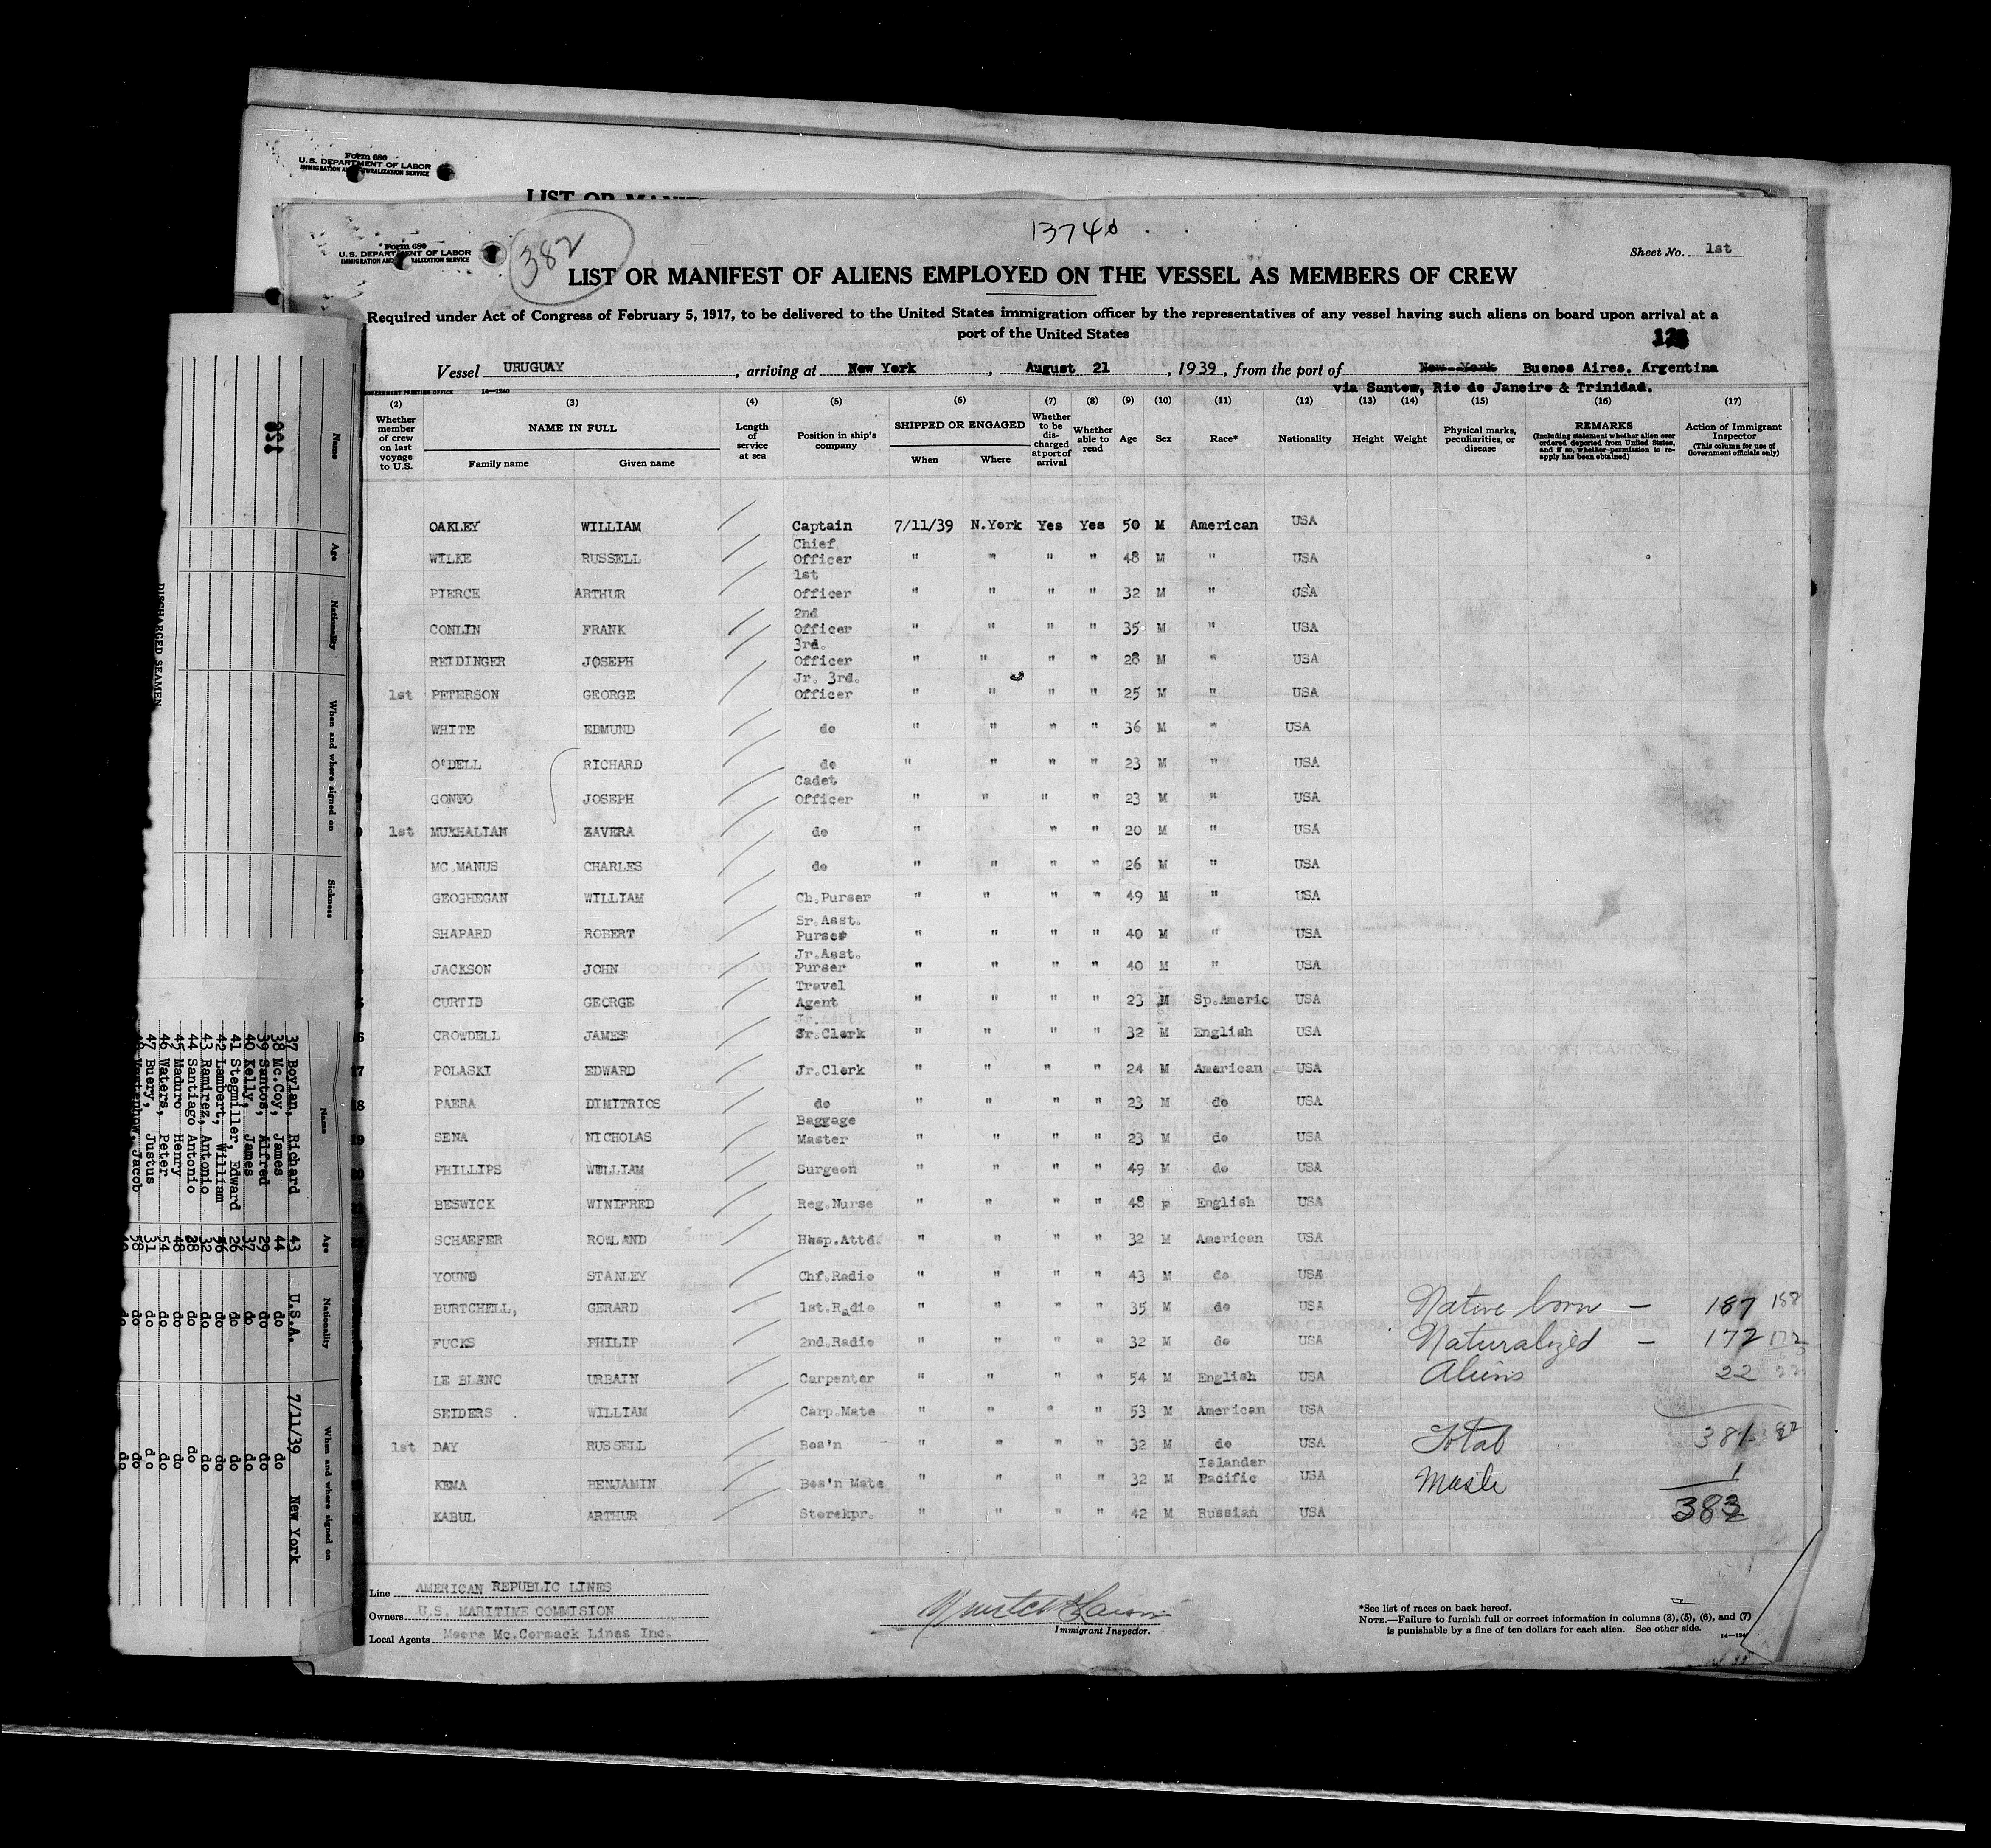 Form 680
U.S. DEPARTMENT OF LABOR
IMMIGRATION AND NATURALIZATION SERVICE
LIST OR MANIF
Form 680
U.S. DEPARTMENT OF LABOR
IMMIGRATION AND NATURALIZATION SERVICE
382
13740
Sheet No. 1st
LIST OR MANIFEST OF ALIENS EMPLOYED ON THE VESSEL AS MEMBERS OF CREW
Required under Act of Congress of February 5, 1917, to be delivered to the United States immigration officer by the representatives of any vessel having such aliens on board upon arrival at a
port of the United States
Vessel URUGUAY, arriving at New York, August 21, 1939, from the port of New York Buenos Aires. Argentina
via Santos, Rio de Janeiro & Trinidad.
GOVERNMENT PRINTING OFFICE 14-1240
(2) (3) (4) (5) (6) (7) (8) (9) (10) (11) (12) (13) (14) (15) (16) (17)
Whether member of crew on last voyage to U.S.
NAME IN FULL
Family name Given name
Length of service at sea
Position in ship's company
SHIPPED OR ENGAGED
When Where
Whether to be discharged at port of arrival
Whether able to read
Age Sex Race* Nationality Height Weight
Physical marks, peculiarities, or disease
REMARKS
(Including statement whether alien ever ordered deported from United States, and if so, whether permission to re-apply has been obtained)
Action of Immigrant Inspector
(This column for use of Government officials only)
OAKLEY WILLIAM Captain 7/11/39 N.York Yes Yes 50 M American USA
WILKE RUSSELL Chief Officer " " " " 48 M " USA
PIERCE ARTHUR 1st Officer " " " " 32 M " USA
CONLIN FRANK 2nd Officer " " " " 35 M " USA
REIDINGER JOSEPH 3rd. Officer " " " " 28 M " USA
1st PETERSON GEORGE Jr. 3rd. Officer " " " " 25 M " USA
WHITE EDMUND do " " " " 36 M " USA
O'DELL RICHARD do " " " " 23 M " USA
JOSEPH Cadet Officer " " " " 23 M " USA
1st MUKHALIAN ZAVERA do " " " 20 M " USA
MC.MANUS CHARLES do " " " " 26 M " USA
GEOGHEGAN WILLIAM Ch.Purser " " " " 49 M " USA
SHAPARD ROBERT Sr.Asst. Purser " " " " 40 M " USA
JACKSON JOHN Jr.Asst. Purser " " " " 40 M " USA
CURTIS GEORGE Travel Agent " " " " 23 M Sp.Americ USA
CROWDELL JAMES Sr.Clerk " " " " 32 M English USA
17 POLASKI EDWARD Jr.Clerk " " " " 24 M American USA
18 PAERA DIMITRIOS do " " " " 23 M do USA
19 SENA NICHOLAS Baggage Master " " " " 23 M do USA
20 PHILLIPS WILLIAM Surgeon " " " " 49 M do USA
BESWICK WINIFRED Reg.Nurse " " " " 48 F English USA
SCHAEFER ROWLAND Hosp.Attd. " " " " 32 M American USA
YOUNG STANLEY Chf.Radio " " " " 43 M do USA
BURTCHELL, GERARD 1st.Radio " " " " 35 M do USA
FUCKS PHILIP 2nd.Radio " " " " 32 M do USA
LE BLANC URBAIN Carpenter " " " " 54 M English USA
SEIDERS WILLIAM Carp.Mate " " " " 53 M American USA
1st DAY RUSSELL Bos'n " " " " 32 M do USA
KEMA BENJAMIN Bos'n Mate " " " " 32 M Islander Pacific USA
KABUL ARTHUR Storekpr. " " " " 42 M Russian USA
Native born — 187 188
Naturalized — 172 172
Aliens 22 22
Total 381 82
Master 1
383
Line AMERICAN REPUBLIC LINES
Owners U.S. MARITIME COMMISION
Local Agents Moore Mc.Cormack Lines Inc.
Immigrant Inspector.
*See list of races on back hereof.
NOTE.—Failure to furnish full or correct information in columns (3), (5), (6), and (7)
is punishable by a fine of ten dollars for each alien. See other side.
14-1240
DISCHARGED SEAMEN
Name Age Nationality When and where signed on Sickness
Name Age Nationality When and where signed on
37 Boylan, Richard 43 U.S.A. 7/11/39 New York
38 Mc.Coy, James 44 do do
39 Santos, Alfred 29 do do
40 Kelly, James 37 do do
41 Stegmiller, Edward 26 do do
42 Lambert, William 56 do do
43 Ramirez, Antonio 32 do do
44 Santiago Antonio 28 do do
45 Maduro Henry 48 do do
46 Waters, Peter 54 do do
47 Buery, Justus 31 do do
Jacob 58 do do